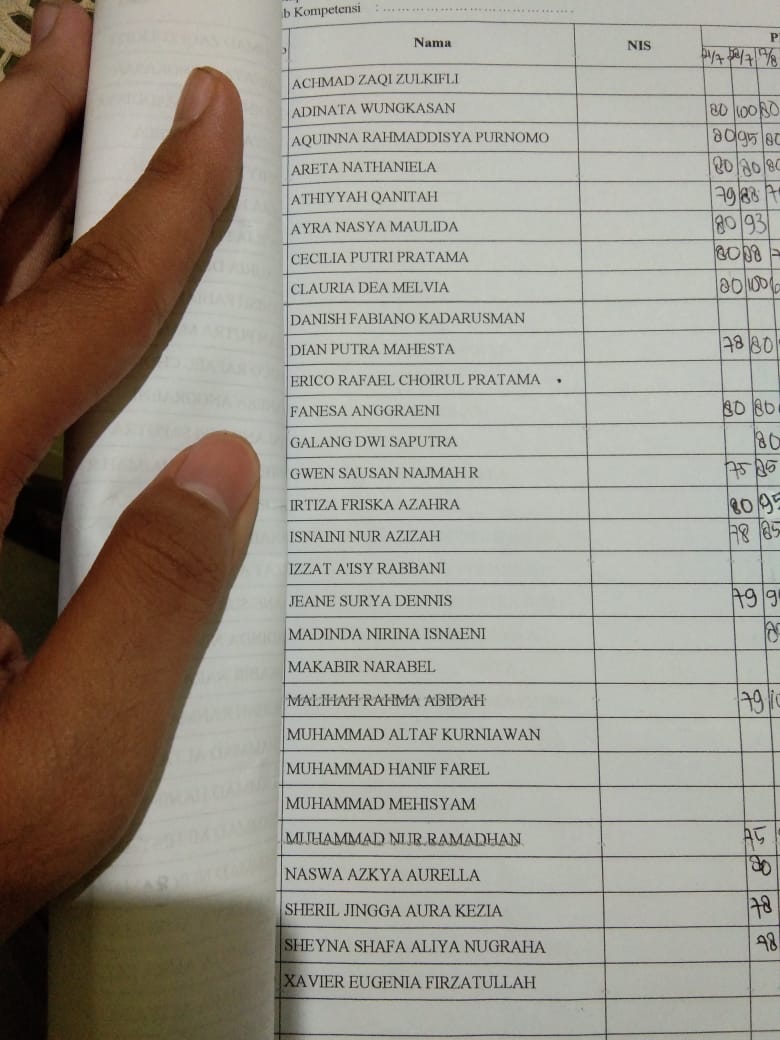 b Kompetensi : ........................................
Nama NIS P
21/7 28/7
ACHMAD ZAQI ZULKIFLI
ADINATA WUNGKASAN 80 100 80
AQUINNA RAHMADDISYA PURNOMO 80 95 80
ARETA NATHANIELA 80 80 80
ATHIYYAH QANITAH 79 88 7
AYRA NASYA MAULIDA 80 93
CECILIA PUTRI PRATAMA 80 88
CLAURIA DEA MELVIA 80 100
DANISH FABIANO KADARUSMAN
DIAN PUTRA MAHESTA 78 80
ERICO RAFAEL CHOIRUL PRATAMA
FANESA ANGGRAENI 80 80
GALANG DWI SAPUTRA 80
GWEN SAUSAN NAJMAH R 75 85
IRTIZA FRISKA AZAHRA 80 95
ISNAINI NUR AZIZAH 78 85
IZZAT A'ISY RABBANI
JEANE SURYA DENNIS 79 9
MADINDA NIRINA ISNAENI 8
MAKABIR NARABEL
MALIHAH RAHMA ABIDAH 79 10
MUHAMMAD ALTAF KURNIAWAN
MUHAMMAD HANIF FAREL
MUHAMMAD MEHISYAM
MUHAMMAD NUR RAMADHAN 75
NASWA AZKYA AURELLA 80
SHERIL JINGGA AURA KEZIA 78
SHEYNA SHAFA ALIYA NUGRAHA 78
XAVIER EUGENIA FIRZATULLAH